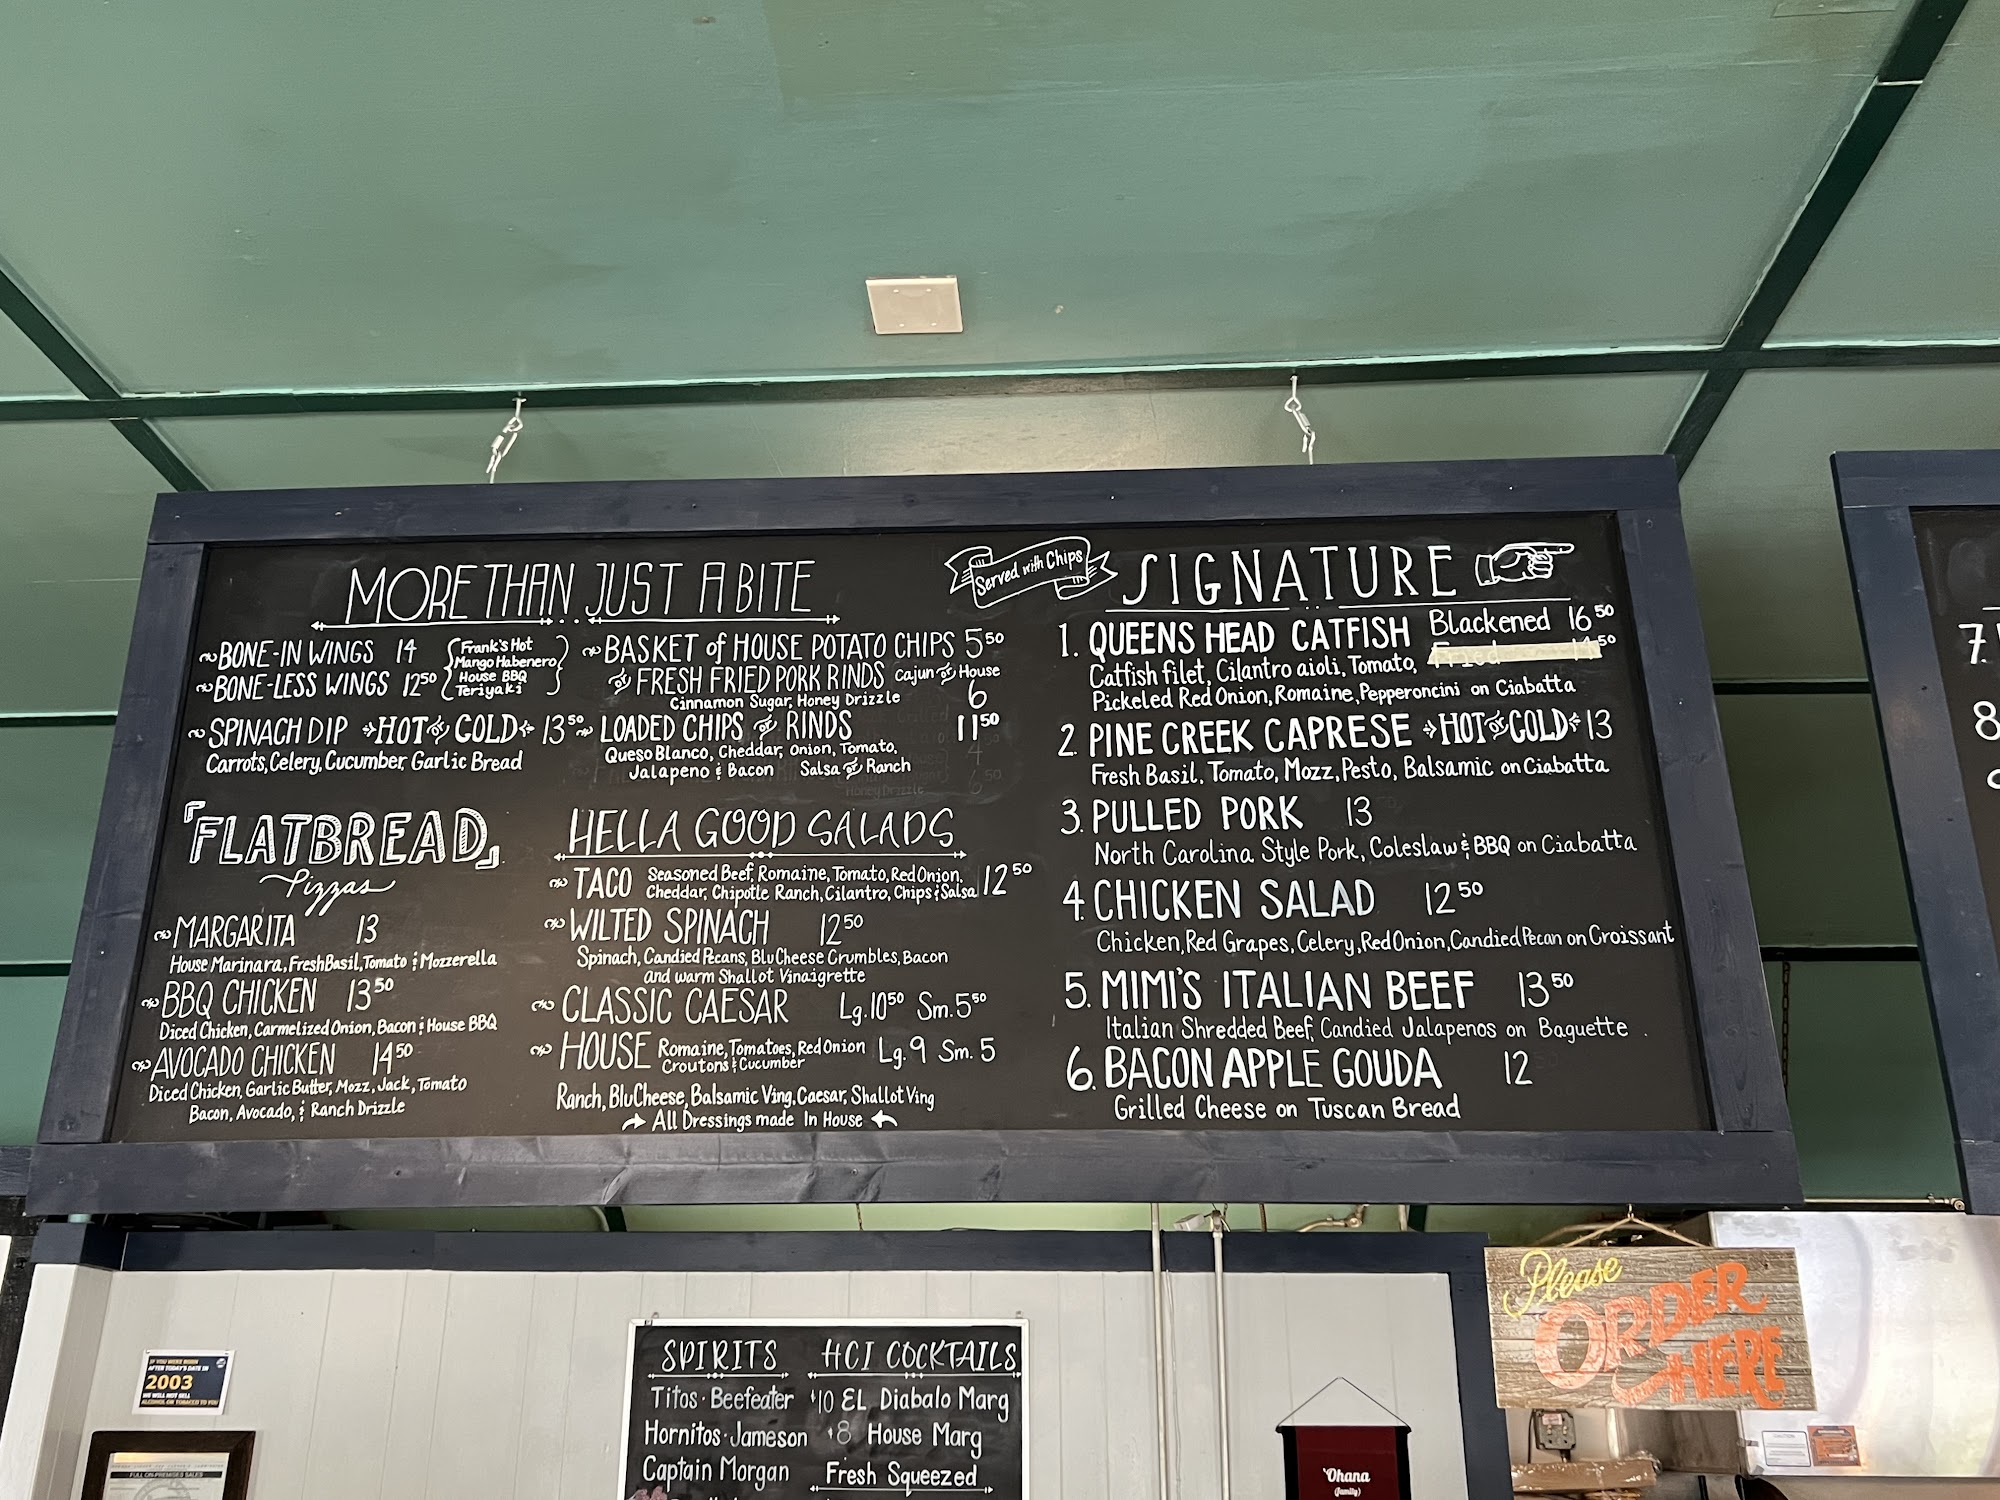 MORE THAN JUST A BITE
BONE-IN WINGS 14
BONE-LESS WINGS 12⁵⁰
Frank's Hot
Mango Habenero
House BBQ
Teriyaki
SPINACH DIP HOT or COLD 13⁵⁰
Carrots, Celery, Cucumber, Garlic Bread
BASKET of HOUSE POTATO CHIPS 5⁵⁰
or FRESH FRIED PORK RINDS Cajun or House
Cinnamon Sugar, Honey Drizzle 6
LOADED CHIPS or RINDS 11⁵⁰
Queso Blanco, Cheddar, Onion, Tomato,
Jalapeno & Bacon Salsa or Ranch
FLATBREAD
Pizzas
MARGARITA 13
House Marinara, Fresh Basil, Tomato & Mozzerella
BBQ CHICKEN 13⁵⁰
Diced Chicken, Carmelized Onion, Bacon & House BBQ
AVOCADO CHICKEN 14⁵⁰
Diced Chicken, Garlic Butter, Mozz, Jack, Tomato
Bacon, Avocado, & Ranch Drizzle
HELLA GOOD SALADS
TACO Seasoned Beef, Romaine, Tomato, Red Onion, 12⁵⁰
Cheddar, Chipotle Ranch, Cilantro, Chips & Salsa
WILTED SPINACH 12⁵⁰
Spinach, Candied Pecans, Blu Cheese Crumbles, Bacon
and warm Shallot Vinaigrette
CLASSIC CAESAR Lg. 10⁵⁰ Sm. 5⁵⁰
HOUSE Romaine, Tomatoes, Red Onion Lg. 9 Sm. 5
Croutons & Cucumber
Ranch, Blu Cheese, Balsamic Ving, Caesar, Shallot Ving
All Dressings made In House
Served with Chips
SIGNATURE
1. QUEENS HEAD CATFISH Blackened 16⁵⁰
Catfish filet, Cilantro aioli, Tomato,
Pickeled Red Onion, Romaine, Pepperoncini on Ciabatta
2. PINE CREEK CAPRESE HOT or COLD 13
Fresh Basil, Tomato, Mozz, Pesto, Balsamic on Ciabatta
3. PULLED PORK 13
North Carolina Style Pork, Coleslaw & BBQ on Ciabatta
4. CHICKEN SALAD 12⁵⁰
Chicken, Red Grapes, Celery, Red Onion, Candied Pecan on Croissant
5. MIMI'S ITALIAN BEEF 13⁵⁰
Italian Shredded Beef, Candied Jalapenos on Baguette
6. BACON APPLE GOUDA 12
Grilled Cheese on Tuscan Bread
7.
8
Please
ORDER
HERE
SPIRITS
Titos · Beefeater
Hornitos · Jameson
Captain Morgan
HCI COCKTAILS
$10 EL Diabalo Marg
$8 House Marg
Fresh Squeezed
IF YOU WERE BORN
AFTER TODAY'S DATE IN
2003
WE WILL NOT SELL
ALCOHOL OR TOBACCO TO YOU
FULL ON-PREMISES SALES
'Ohana
(family)